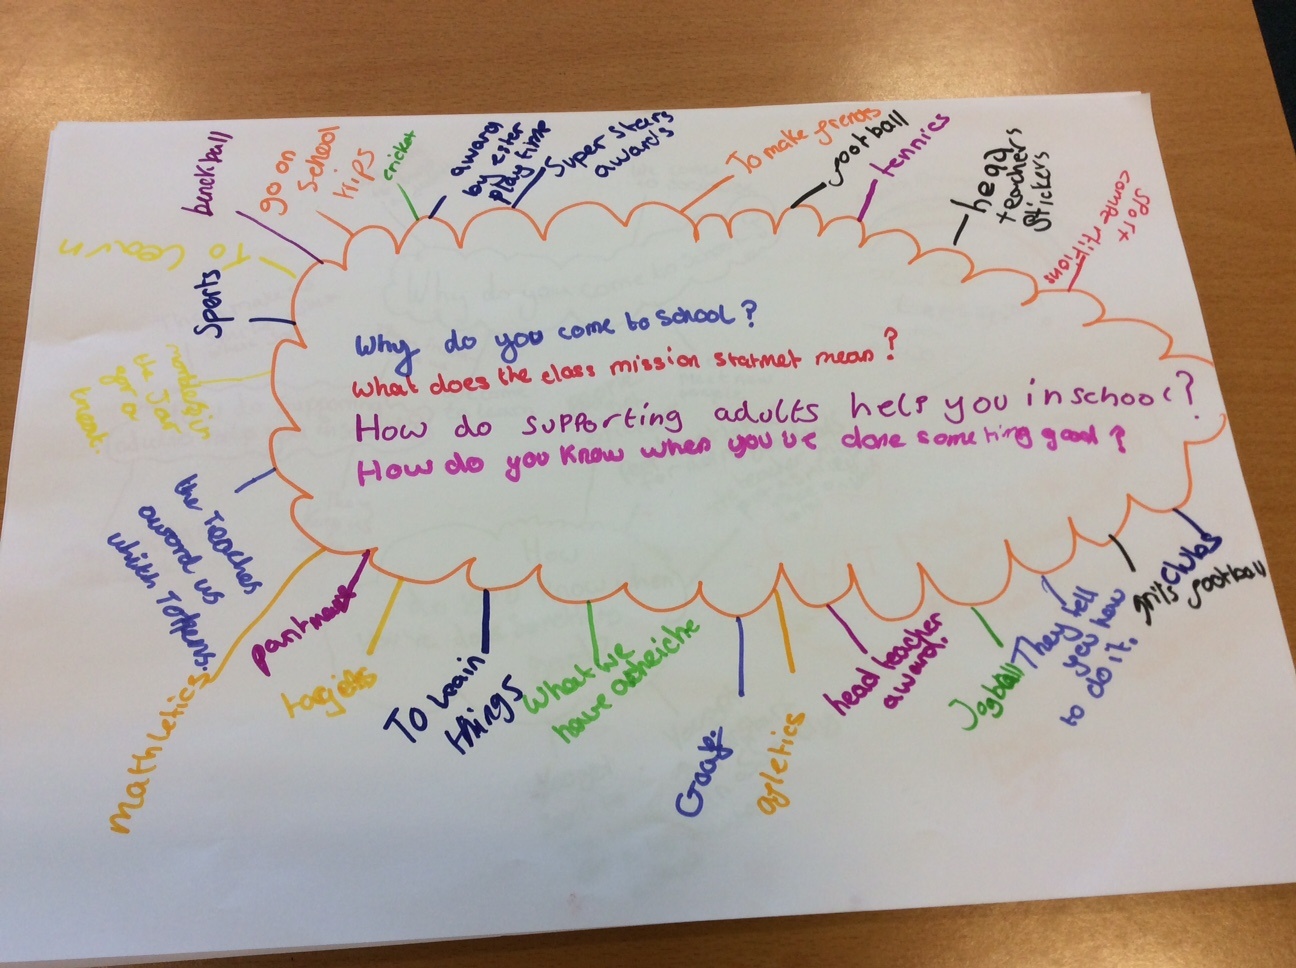 Why do you come to school?
What does the class mission statmet mean?
How do supporting adults help you in school?
How do you know when you've done something good?
benckball
go on
School
trips
cricket
award
by ester
play time
Super stars
awards
To make frends
football
tennics
head
teachers
stickers
SPort
compretitions
Clubs
girls football
They tell
you how
to do it.
Jogball
head teacher
award.
Goal.
What we
have
To learn
things
targets
Mathletics
the Teaches
award us
whith Tokens.
treat.
Sports
To
Learn